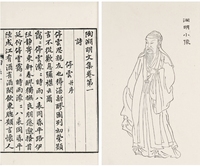 淵明小像
陶淵明文集卷第一
詩
停雲并序
停雲思親友也罇湛新醪園列初榮願
言不從歎息彌襟
靄靄停雲濛濛時雨八表同昏平路伊
阻靜寄東軒春醪獨撫良朋悠邈搔首
延佇停雲靄靄時雨濛濛八表同昏平
陸成江有酒有酒閒飲東願言懷人